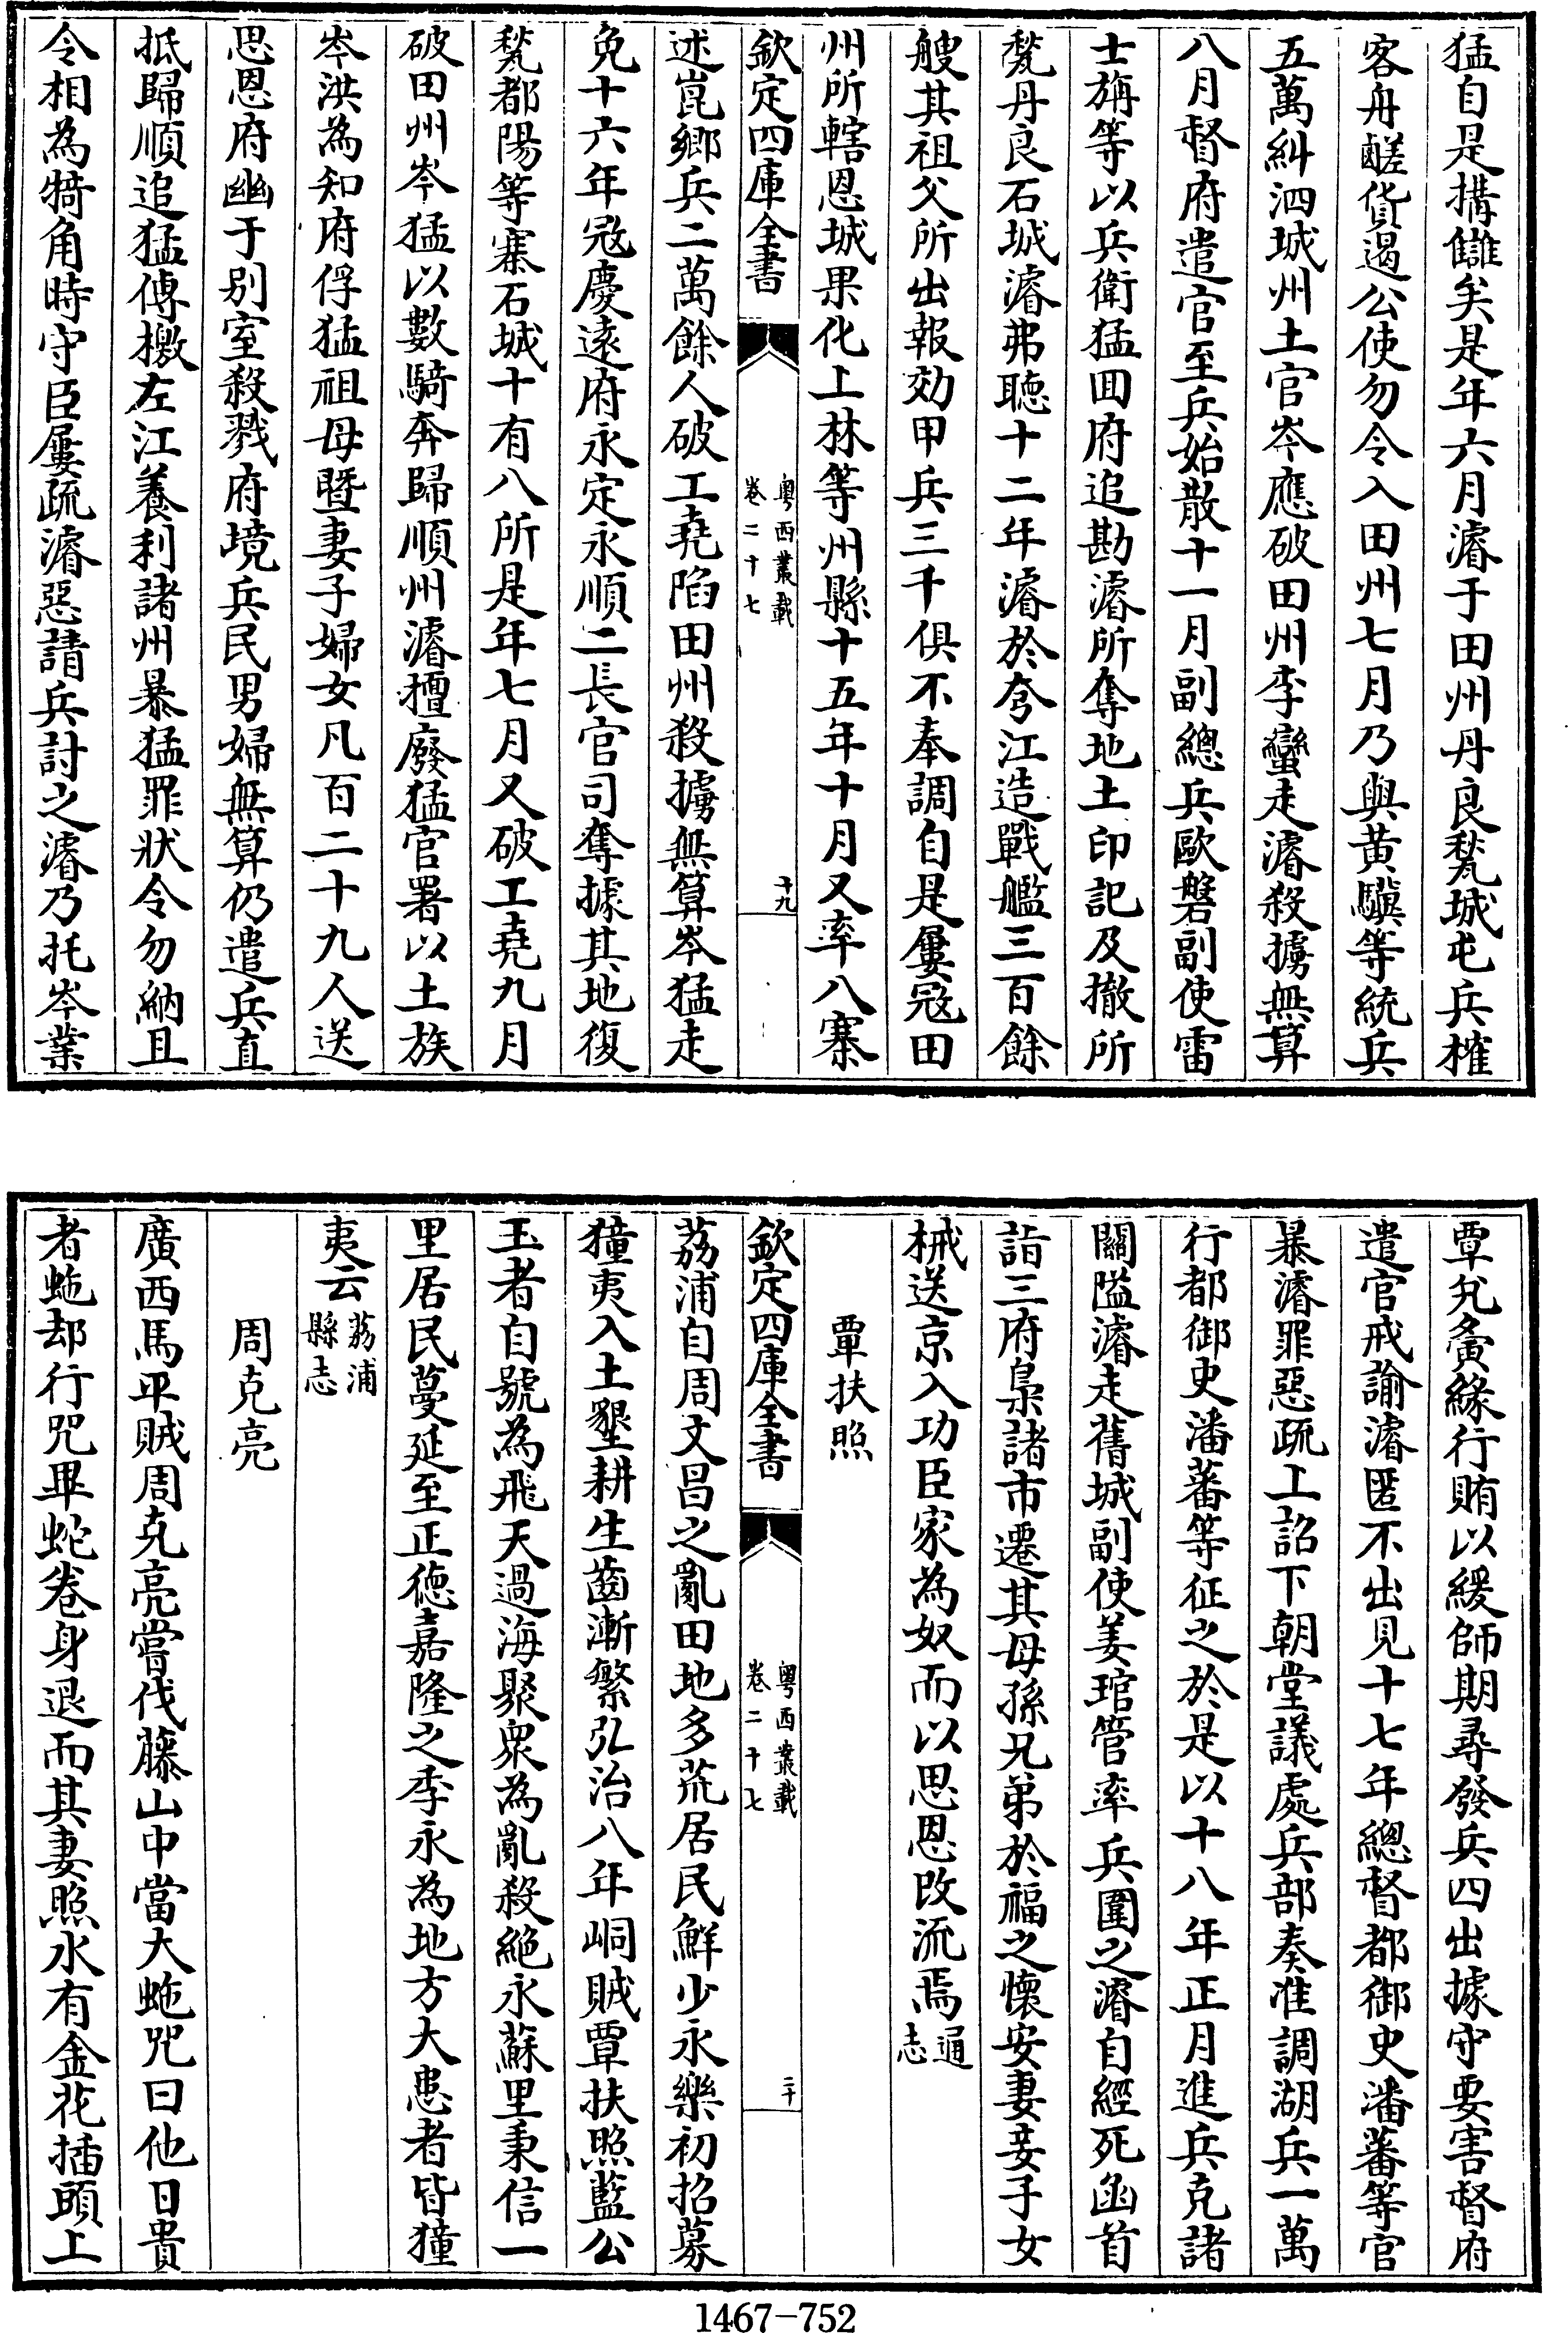 猛自是搆讎矣是年六月濬于田州丹良甃城屯兵榷
客舟鹺貨遏公使勿令入田州七月乃與黃驥等統兵
五萬糾泗城州土官岑應破田州李蠻走濬殺擄無算
八月督府遣官至兵始散十一月副總兵歐磐副使雷
士旃等以兵衛猛囬府追勘濬所奪地土印記及撤所
甃丹良石城濬弗聽十二年濬於夸江造戰艦三百餘
艘其祖父所出報効甲兵三千俱不奉調自是屢冦田
州所轄恩城果化上林等州縣十五年十月又率八寨
欽定四庫全書
粤西叢載
卷二十七
十九
述崑鄉兵二萬餘人破工堯陷田州殺擄無算岑猛走
免十六年冦慶遠府永定永順二長官司奪據其地復
甃都陽等寨石城十有八所是年七月又破工堯九月
破田州岑猛以數騎奔歸順州濬擅廢猛官署以土族
岑洪為知府俘猛祖母暨妻子婦女凡百二十九人送
思恩府幽于别室殺戮府境兵民男婦無算仍遣兵直
抵歸順追猛傳檄左江養利諸州暴猛罪狀令勿納且
令相為犄角時守臣屢疏濬惡請兵討之濬乃托岑業
覃兊夤緣行賄以緩師期尋發兵四出據守要害督府
遣官戒諭濬匿不出見十七年總督都御史潘蕃等官
暴濬罪惡疏上詔下朝堂議處兵部奏准調湖兵一萬
行都御史潘蕃等征之於是以十八年正月進兵克諸
關隘濬走舊城副使姜琯管率兵圍之濬自經死函首
詣三府梟諸市遷其母孫兄弟於福之懷安妻妾子女
械送京入功臣家為奴而以思恩改流焉通志
覃扶照
欽定四庫全書
粤西叢載
卷二十七
二十
荔浦自周文昌之亂田地多荒居民鮮少永樂初招募
獞夷入土墾耕生齒漸繁弘治八年峒賊覃扶照藍公
玉者自號為飛天過海聚衆為亂殺絶永蘇里秉信一
里居民蔓延至正德嘉隆之季永為地方大患者皆獞
夷云荔浦縣志
周克亮
廣西馬平賊周克亮嘗伐藤山中當大虵咒曰他日貴
者虵却行咒畢蛇卷身退而其妻照水有金花插頭上
1467-752